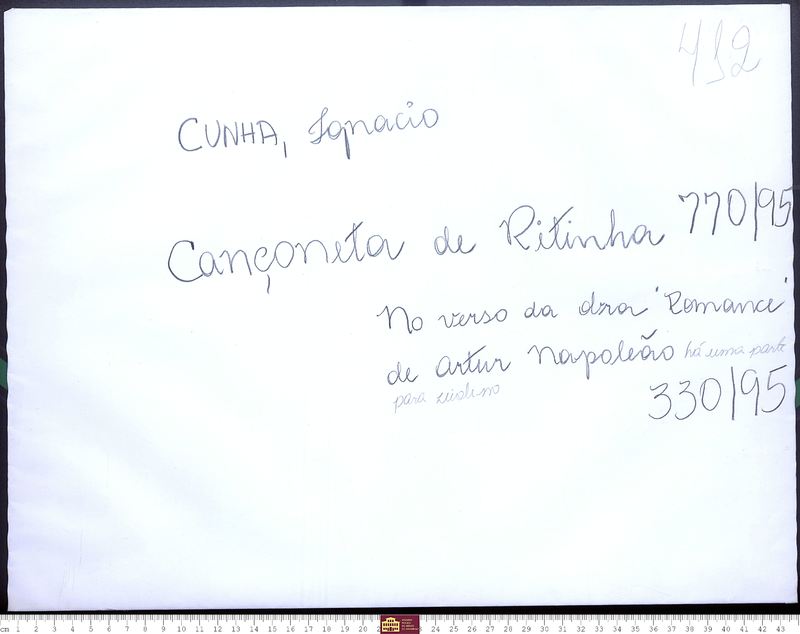 412
CUNHA, Ignacio
Cançoneta de Ritinha 770/95
No verso da obra 'Romance'
de Artur Napoleão há uma parte
para violino
330/95
cm 1 2 3 4 5 6 7 8 9 10 11 12 13 14 15 16 17 18 19 20 24 25 26 27 28 29 30 31 32 33 34 35 36 37 38 39 40 41 42 43